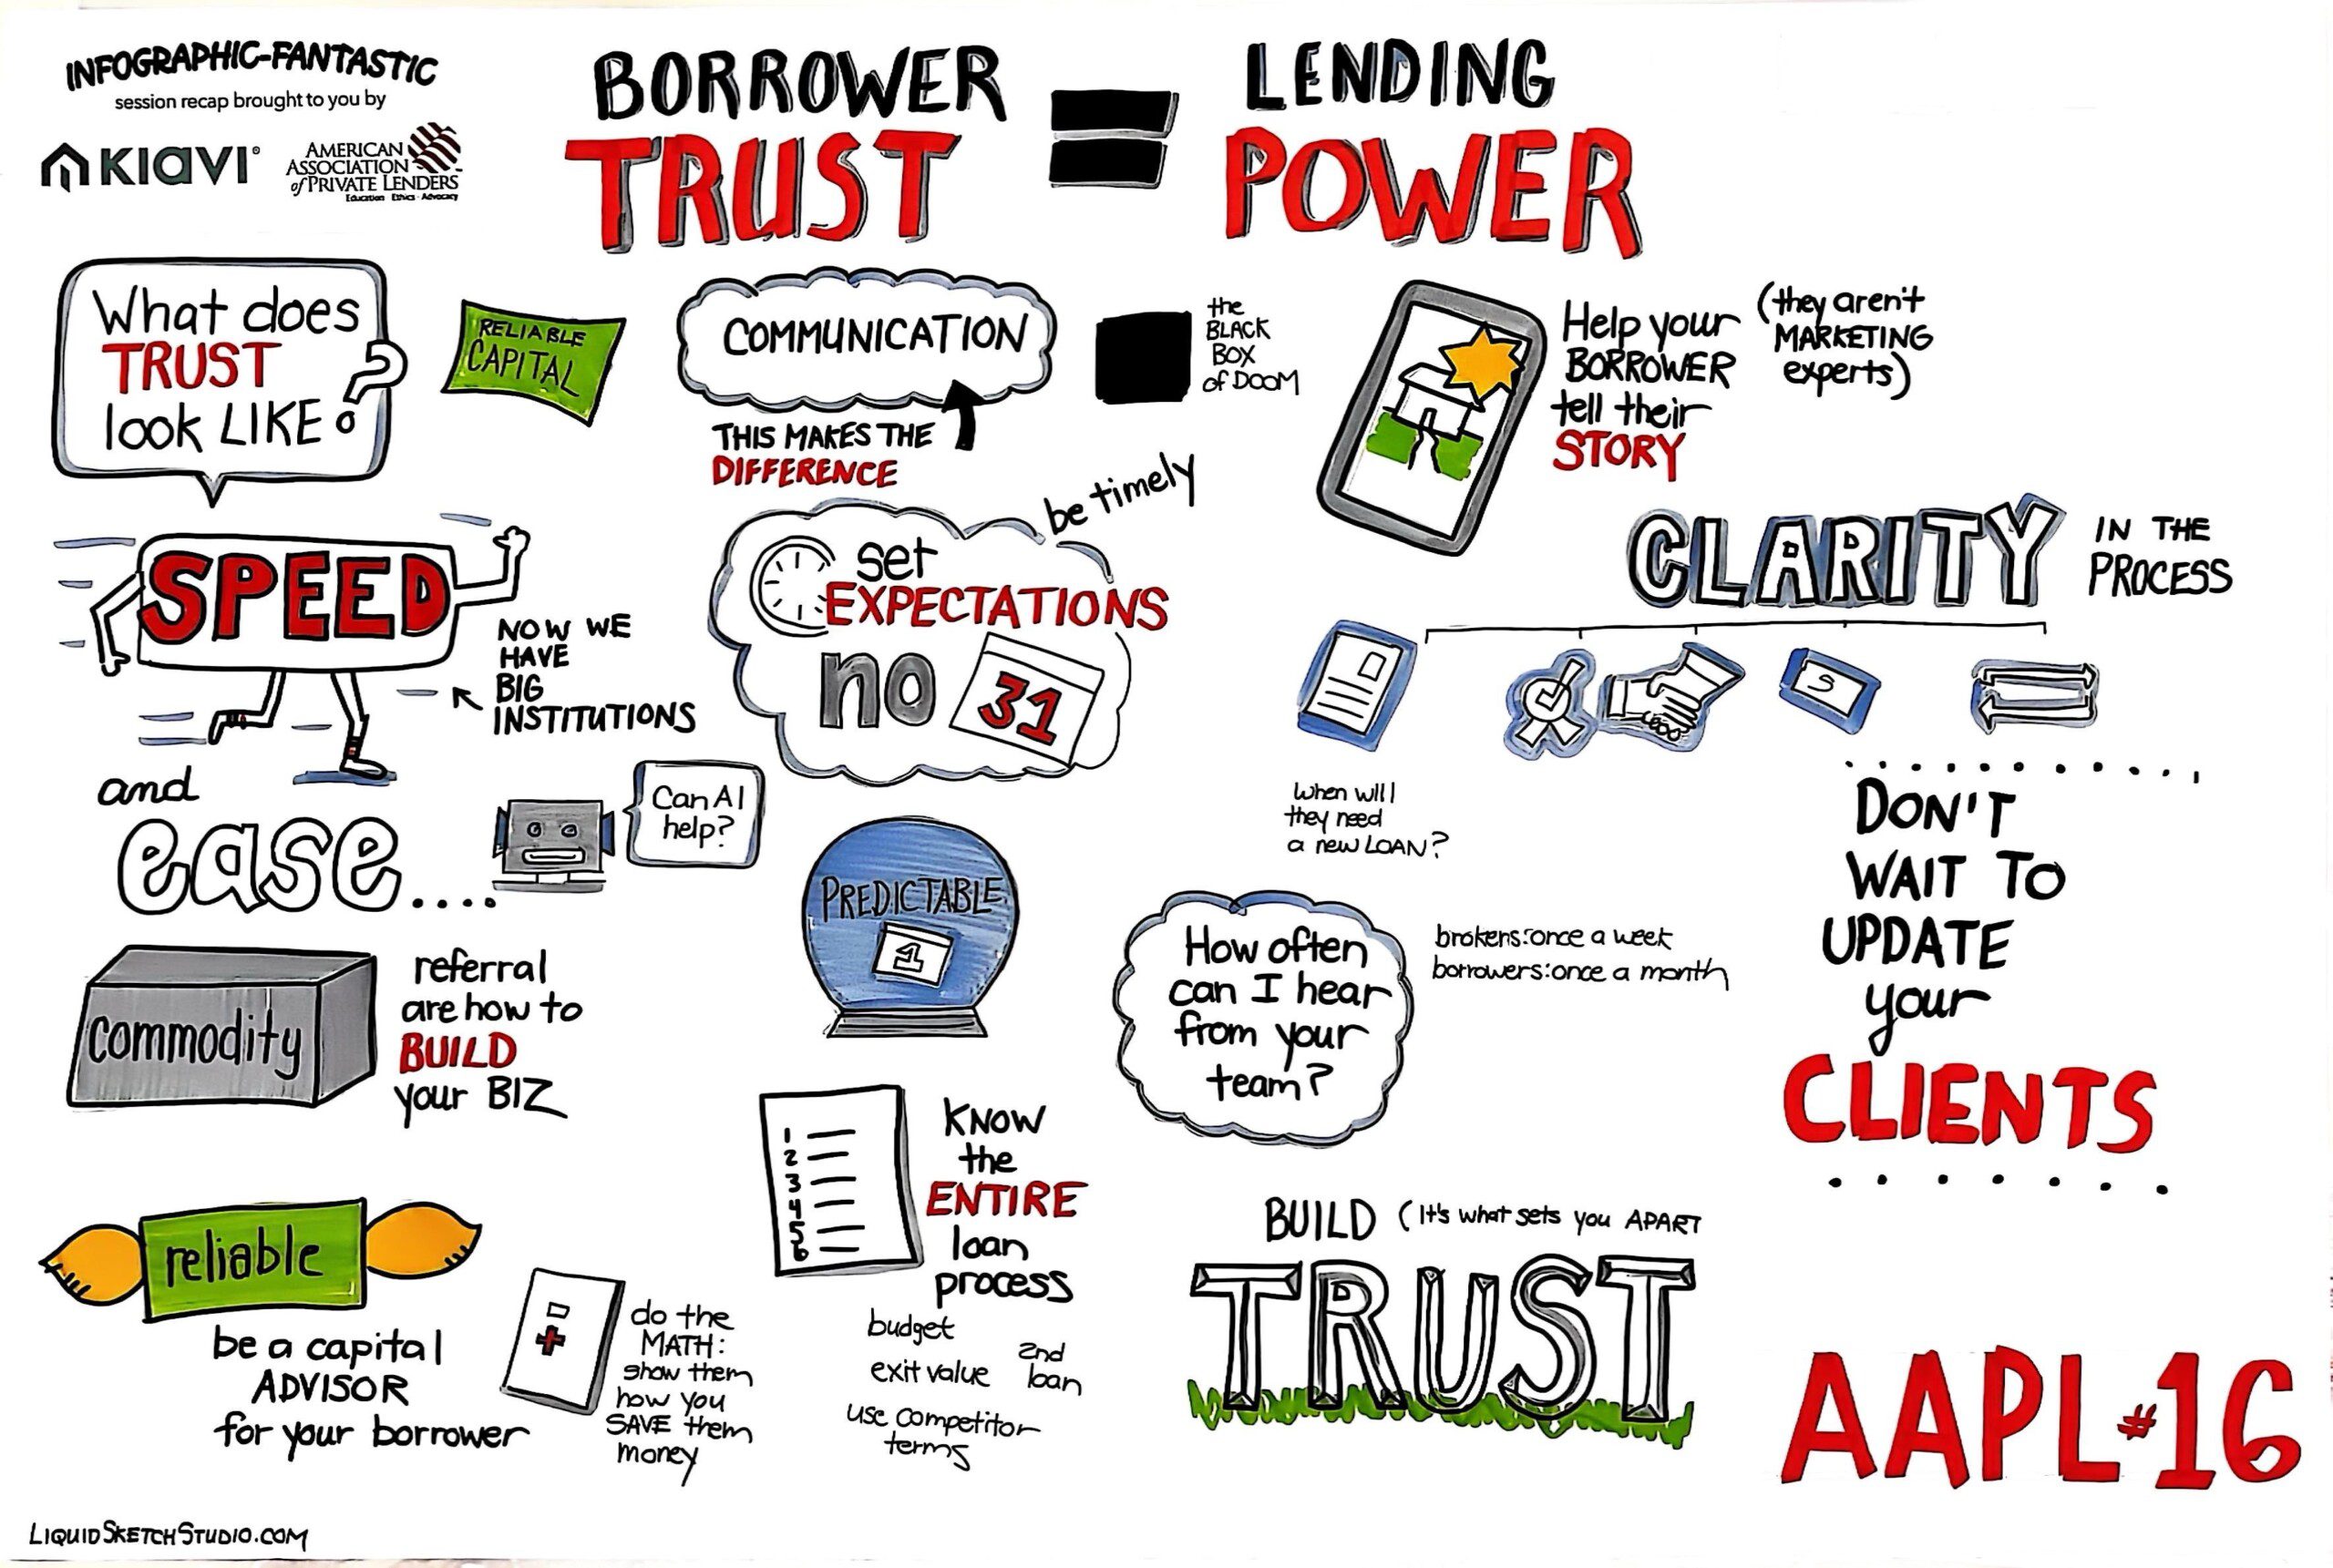 INFOGRAPHIC-FANTASTIC
session recap brought to you by
KIAVI
AMERICAN
ASSOCIATION
of PRIVATE LENDERS
Education · Ethics · Advocacy
BORROWER
TRUST
=
LENDING
POWER
What does
TRUST
look LIKE?
RELIABLE
CAPITAL
COMMUNICATION
THIS MAKES THE
DIFFERENCE
the
BLACK
BOX
of DOOM
Help your
BORROWER
tell their
STORY
(they aren't
MARKETING
experts)
SPEED
NOW WE
HAVE
BIG
INSTITUTIONS
be timely
set
EXPECTATIONS
no
31
CLARITY
IN THE
PROCESS
S
and
ease....
Can AI
help?
PREDICTABLE
1
When will
they need
a new LOAN?
How often
can I hear
from your
team?
brokers: once a week
borrowers: once a month
DON'T
WAIT TO
UPDATE
your
CLIENTS
commodity
referral
are how to
BUILD
your BIZ
1
2
3
4
5
6
KNOW
the
ENTIRE
loan
process
budget
exit value
2nd
loan
use competitor
terms
reliable
be a capital
ADVISOR
for your borrower
do the
MATH:
show them
how you
SAVE them
money
BUILD (It's what sets you APART
TRUST
AAPL #16
LIQUIDSKETCHSTUDIO.COM